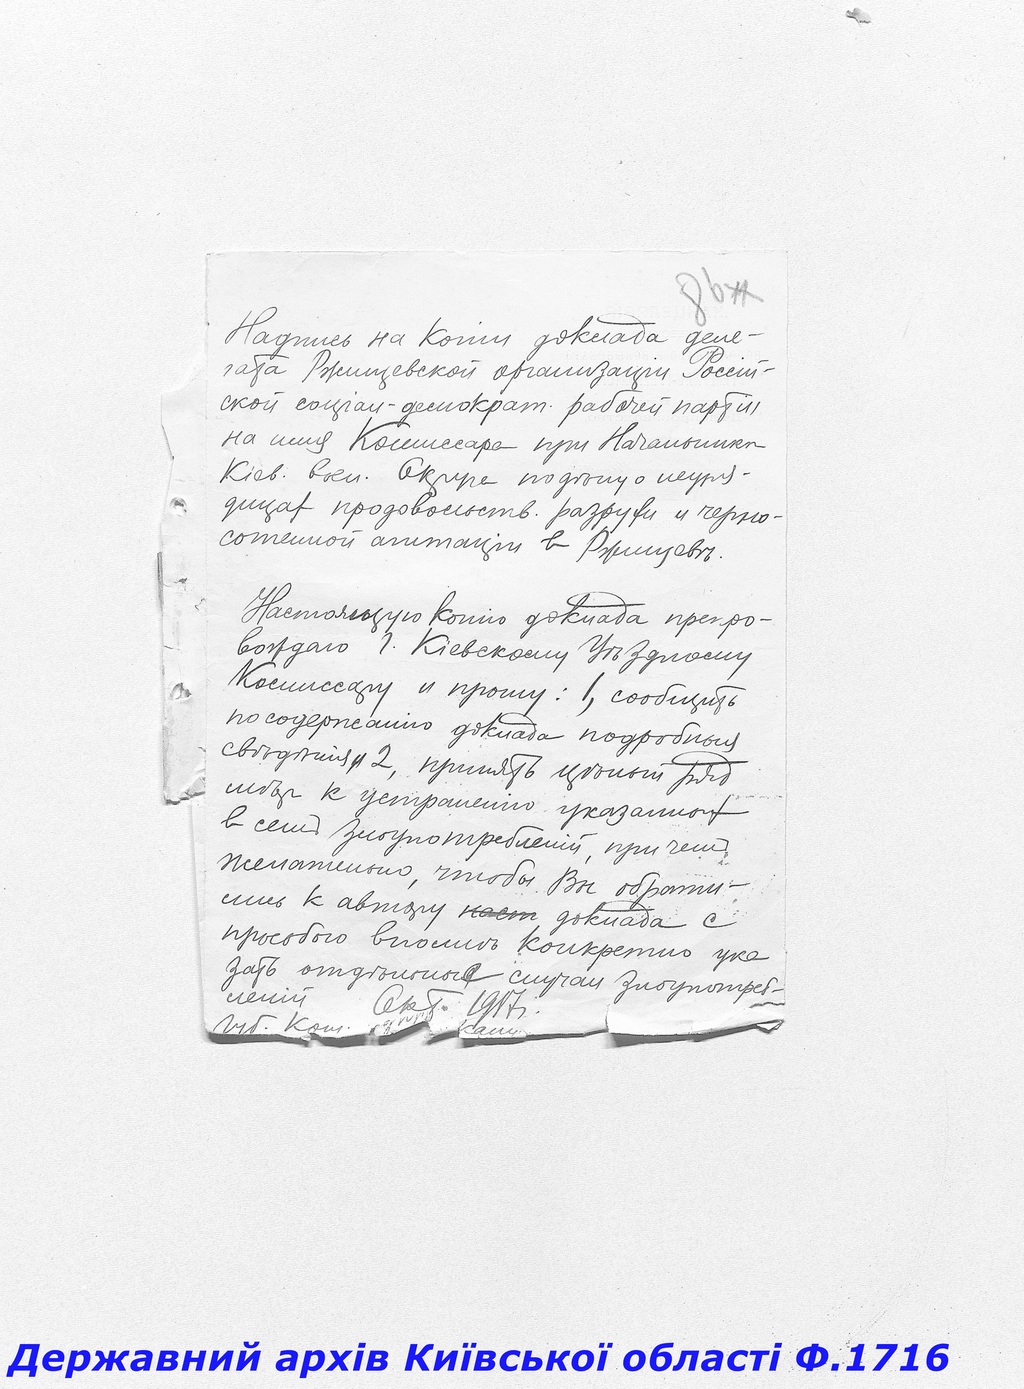 Надпись на копіи доклада деле-
гата Ржищевской организаціи Россій-
ской соціал-демократ. рабочей партіи
на имя Комиссара при Начальники
Кіев. воен. Округа по дѣлу о неуря-
дицах продовольств. разрухи и черно-
сотенной агитаціи в Ржищевѣ.
Настоящую копію доклада препро-
вождаю г. Кіевскому Уѣздному
Комиссару и прошу: 1, сообщить
по содержанію доклада подробныя
свѣдѣнія и 2, принять цѣлый ряд
мѣр к устраненію указанных
в нем злоупотребленій, при чем
желательно, чтобы Вы обрати-
лись к автору наст доклада с
просьбою вполнѣ конкретно ука
зать отдѣльные случаи злоупотреб-
леній Окт. 1917 г.
Губ. Ком.
Державний архів Київської області Ф.1716